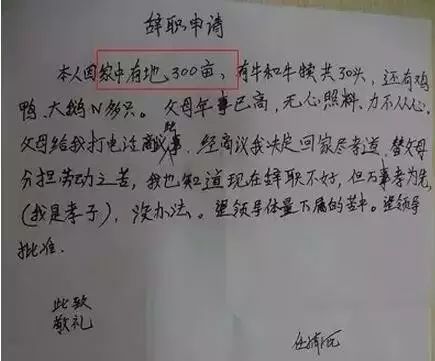 辞职申请
本人因家中有地300亩、有牛和牛犊共30头,还有鸡
鸭、大鹅N多只。父母年事已高,无心照料、力不从心。
父母给我打电话商议此事,经商议我决定回家尽孝道,替父母
分担劳动之苦,我也知道现在辞职不好,但万事孝为先,
(我是孝子),没办法。望领导体量下属的苦中。望领导
批准.
此致
敬礼